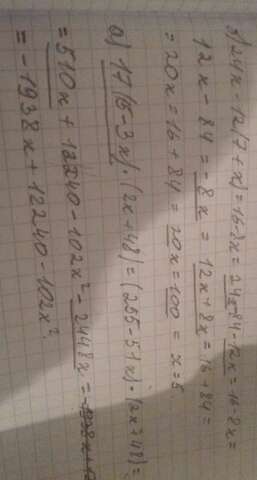 б) 24x - 12(7+x) = 16-8x = 24x-84-12x = 16-8x =
12x - 84 = -8x = 12x + 8x = 16 + 84 =
= 20x = 16 + 84 = 20x = 100 = x = 5
а) 17(5-3x)·(2x+48) = (255-51x)·(2x+48) =
= 510x + 12240 - 102x² - 2448x =
= -1938x + 12240 - 102x².